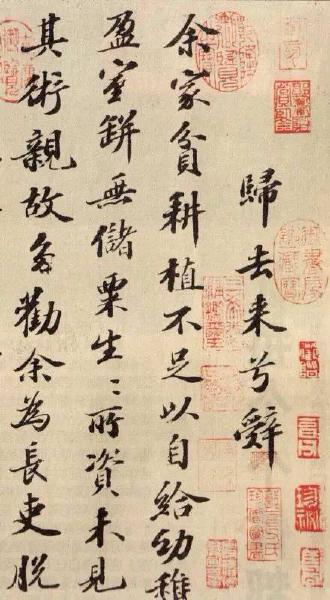 歸去来兮辭
余家貧耕植不足以自給幼稚
盈室缾無儲粟生〻所資未見
其術親故多勸余為長吏脫